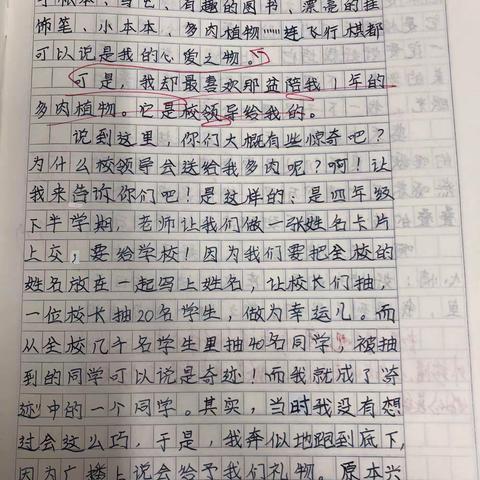 可以说是我的心爱之物。
可是,我却最喜欢那盆陪我1年的
多肉植物。它是校领导给我的。
说到这里,你们大概有些惊奇吧?
为什么校领导会送给我多肉呢?啊!让
我来告诉你们吧!是这样的:是四年级
下半学期,老师让我们做一张姓名卡片
上交,要给学校!因为我们要把全校的
姓名放在一起写上姓名,让校长们抽,
一位校长抽20名学生,做为幸运儿。而
从全校几千名学生里抽40名同学,被抽
到的同学可以说是奇迹!而我就成了“奇
迹”中的一个同学。其实,当时我没有想
过会这么巧,于是,我奔似地跑到底下,
因为广播上说会给予我们礼物。原本兴